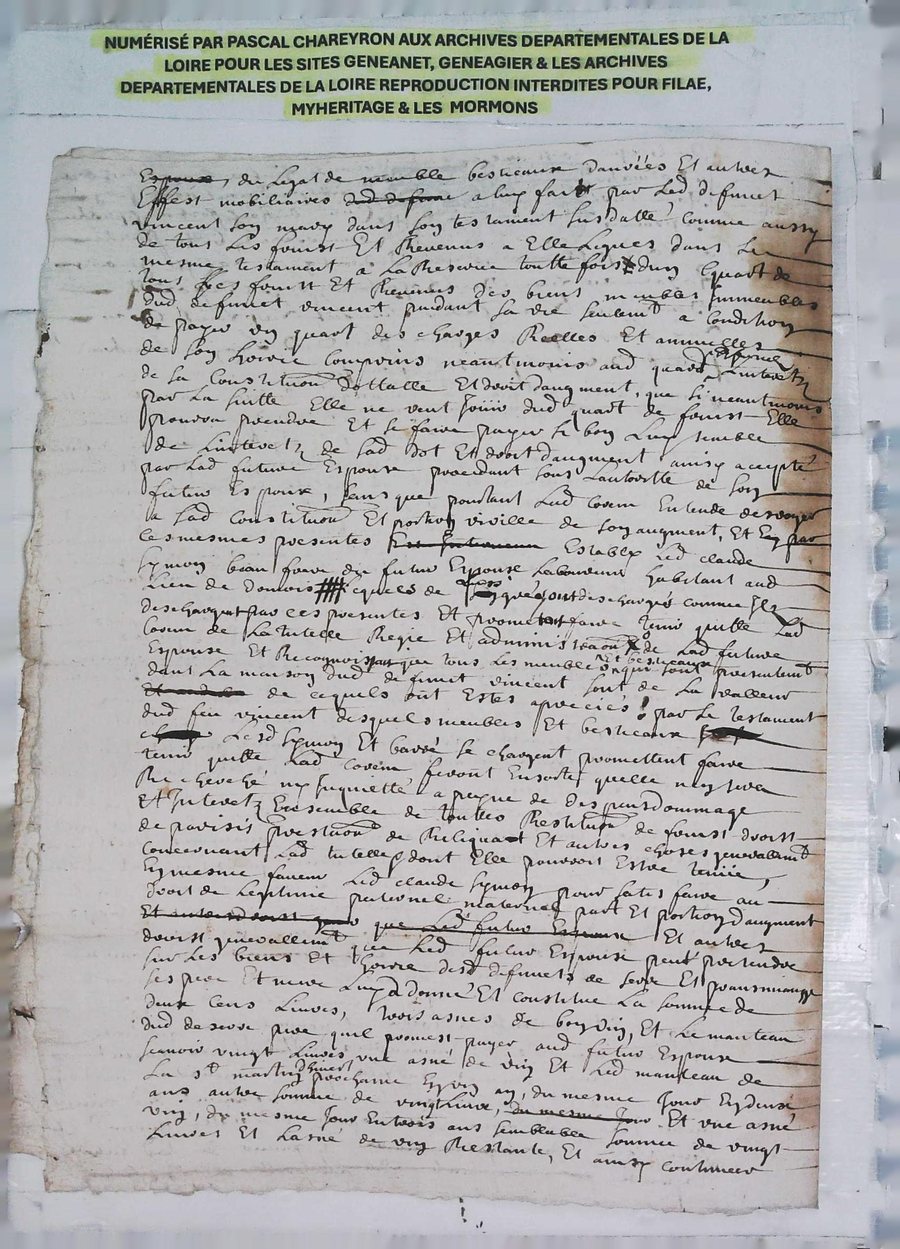 NUMÉRISÉ PAR PASCAL CHAREYRON AUX ARCHIVES DEPARTEMENTALES DE LA
LOIRE POUR LES SITES GENEANET, GENEAGIER & LES ARCHIVES
DEPARTEMENTALES DE LA LOIRE REPRODUCTION INTERDITES POUR FILAE,
MYHERITAGE & LES MORMONS
Espouse, du Legat de meuble bestieaux danrées Et autres
Effest mobiliaires dud defunt a luy fait par Led defunct
vincent son mary dans son testament susdatté comme aussy
de tous Les fruist Et Revenus a Elle Legues dans Le
mesme testament a La Reserve toutte fois dun quart de
tous Les fruist Et Revenus des biens meubles Immeubles
dud defunct vincent pendant sa vie seulemt a Condition
de payer un quart des charges Reelles Et annuelles
de son hoirie Comprins neantmoins aud quart Linterest
de sa Constitution dottalle Et droit daugment, que si neantmoins
par La suitte Elle ne veut Jouir dud quart de fruist Elle
pourra prendre Et se faire payer si bon Luy semble
de Linteretz de Lad dot Et droit daugment ainsy accepté
par Lad future Espouse procedant sous Lauthoritte de son
futur Espoux, sans que pourtant Lad Entende deroger
a Lad Constitution Et portion virille de son augment, Et par
ces mesmes presentes Establi Led claude
symon beau frere du futur Espouse Laboureur habitant aud
Lieu de Lequels de deschargé comme Ils
deschargent par ces presentes Et promettent faire tenir quitte Lad
de La tutelle Regie Et administraon de Lad future
Espouse Et Recognoissant que tous Les meubles Et bestieaux qui sont presentemt
dans La maison dud defunct vincent sont de La valleur
de cequels ont Estes apreciés par Le testament
dud feu vincent desquels meubles Et bestieaux
Lesd symon Et barré se chargent promettent faire
tenir quitte Lad feront Ensorte quelle ne soit
Recherché ny Inquietté a peyne de despens dommage
Et Interetz Ensemble de touttes Restitution de fruist droist
de prestaon de Reliquat Et autres choses generallemt
concernant Lad tutelle dont Elle pourroit Estre tenüe,
Et mesme faveur Led claude symon pour satisfaire au
droit de Legitime paternel maternel part Et portion daugment
Et autres droist que Led futur Espoux Et autres
droist generallemt que Led futur Espoux peut pretendre
sur Les biens Et hoirie desd defunts de Et
ses pere Et mere Luy a donné Et constitue La somme de
deux cens Livres, trois asnes de bon vin, Et Le manteau
dud pere quil promest payer aud futur Espoux
scavoir vingt Livres une asné de vin Et Led manteau de
La st martin dhivert prochaine En un an, du mesme Jour En deux
ans autre somme de vingt Livre, du mesme Jour Et une asné
vin, du mesme Jour En trois ans semblable somme de vingt
Livres Et Lasné de vin Restante, Et ainsy continuer